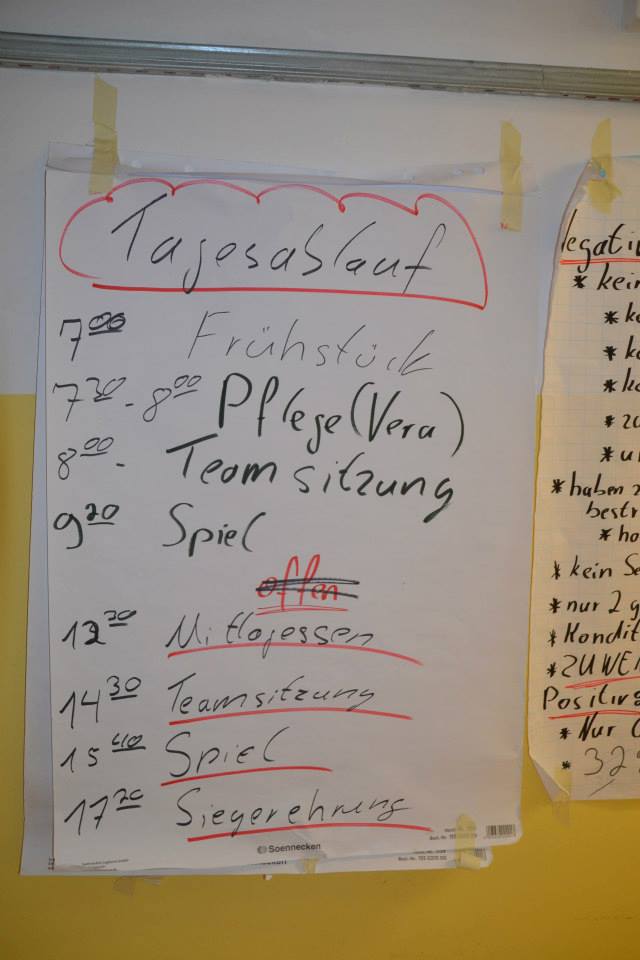 Tagesablauf
7⁰⁰ Frühstück
7³⁰ - 8⁰⁰ Pflege (Vera)
8⁰⁰ - Teamsitzung
9²⁰ Spiel
offen
12³⁰ Mittagessen
14³⁰ Teamsitzung
15⁴⁰ Spiel
17²⁰ Siegerehrung
Soennecken
egativ
* kein
* ke
* ko
* ko
* zu
* un
* haben z
bestr
* ho
* kein Se
* nur 2 g
* Kondit
* ZUWE
Positiv
* Nur
* 32